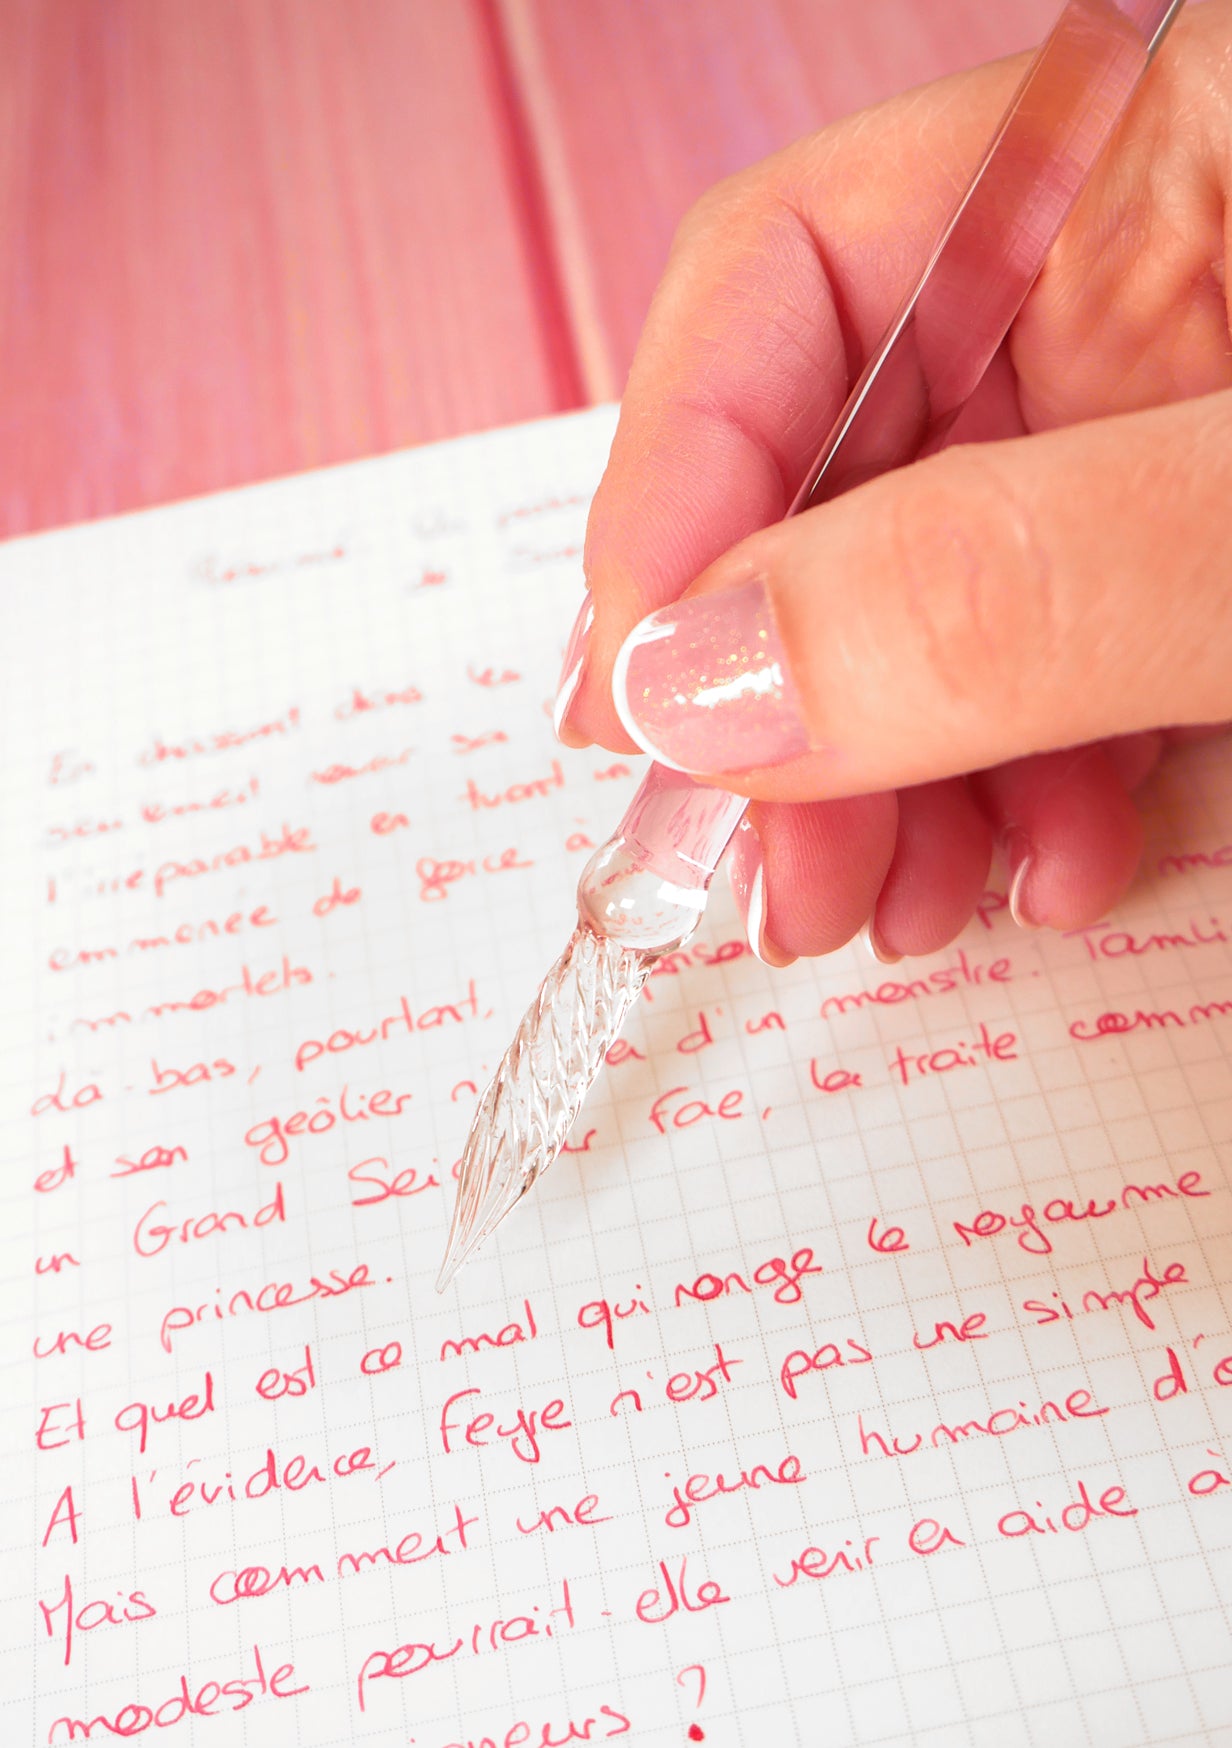 Résumé: Un
de
En chassant dans les
seulement nourrir sa
l'irréparable en tuant un
emmenée de force à
immortels.
Là-bas, pourtant, ma
et son geôlier n' a d'un monstre. Tamli
un Grand Sei r Fae, la traite comm
une princesse.
Et quel est ce mal qui ronge le royaume
A l'évidence, Feyre n'est pas une simple
Mais comment une jeune humaine d'o
modeste pourrait-elle venir en aide à
igneurs ?